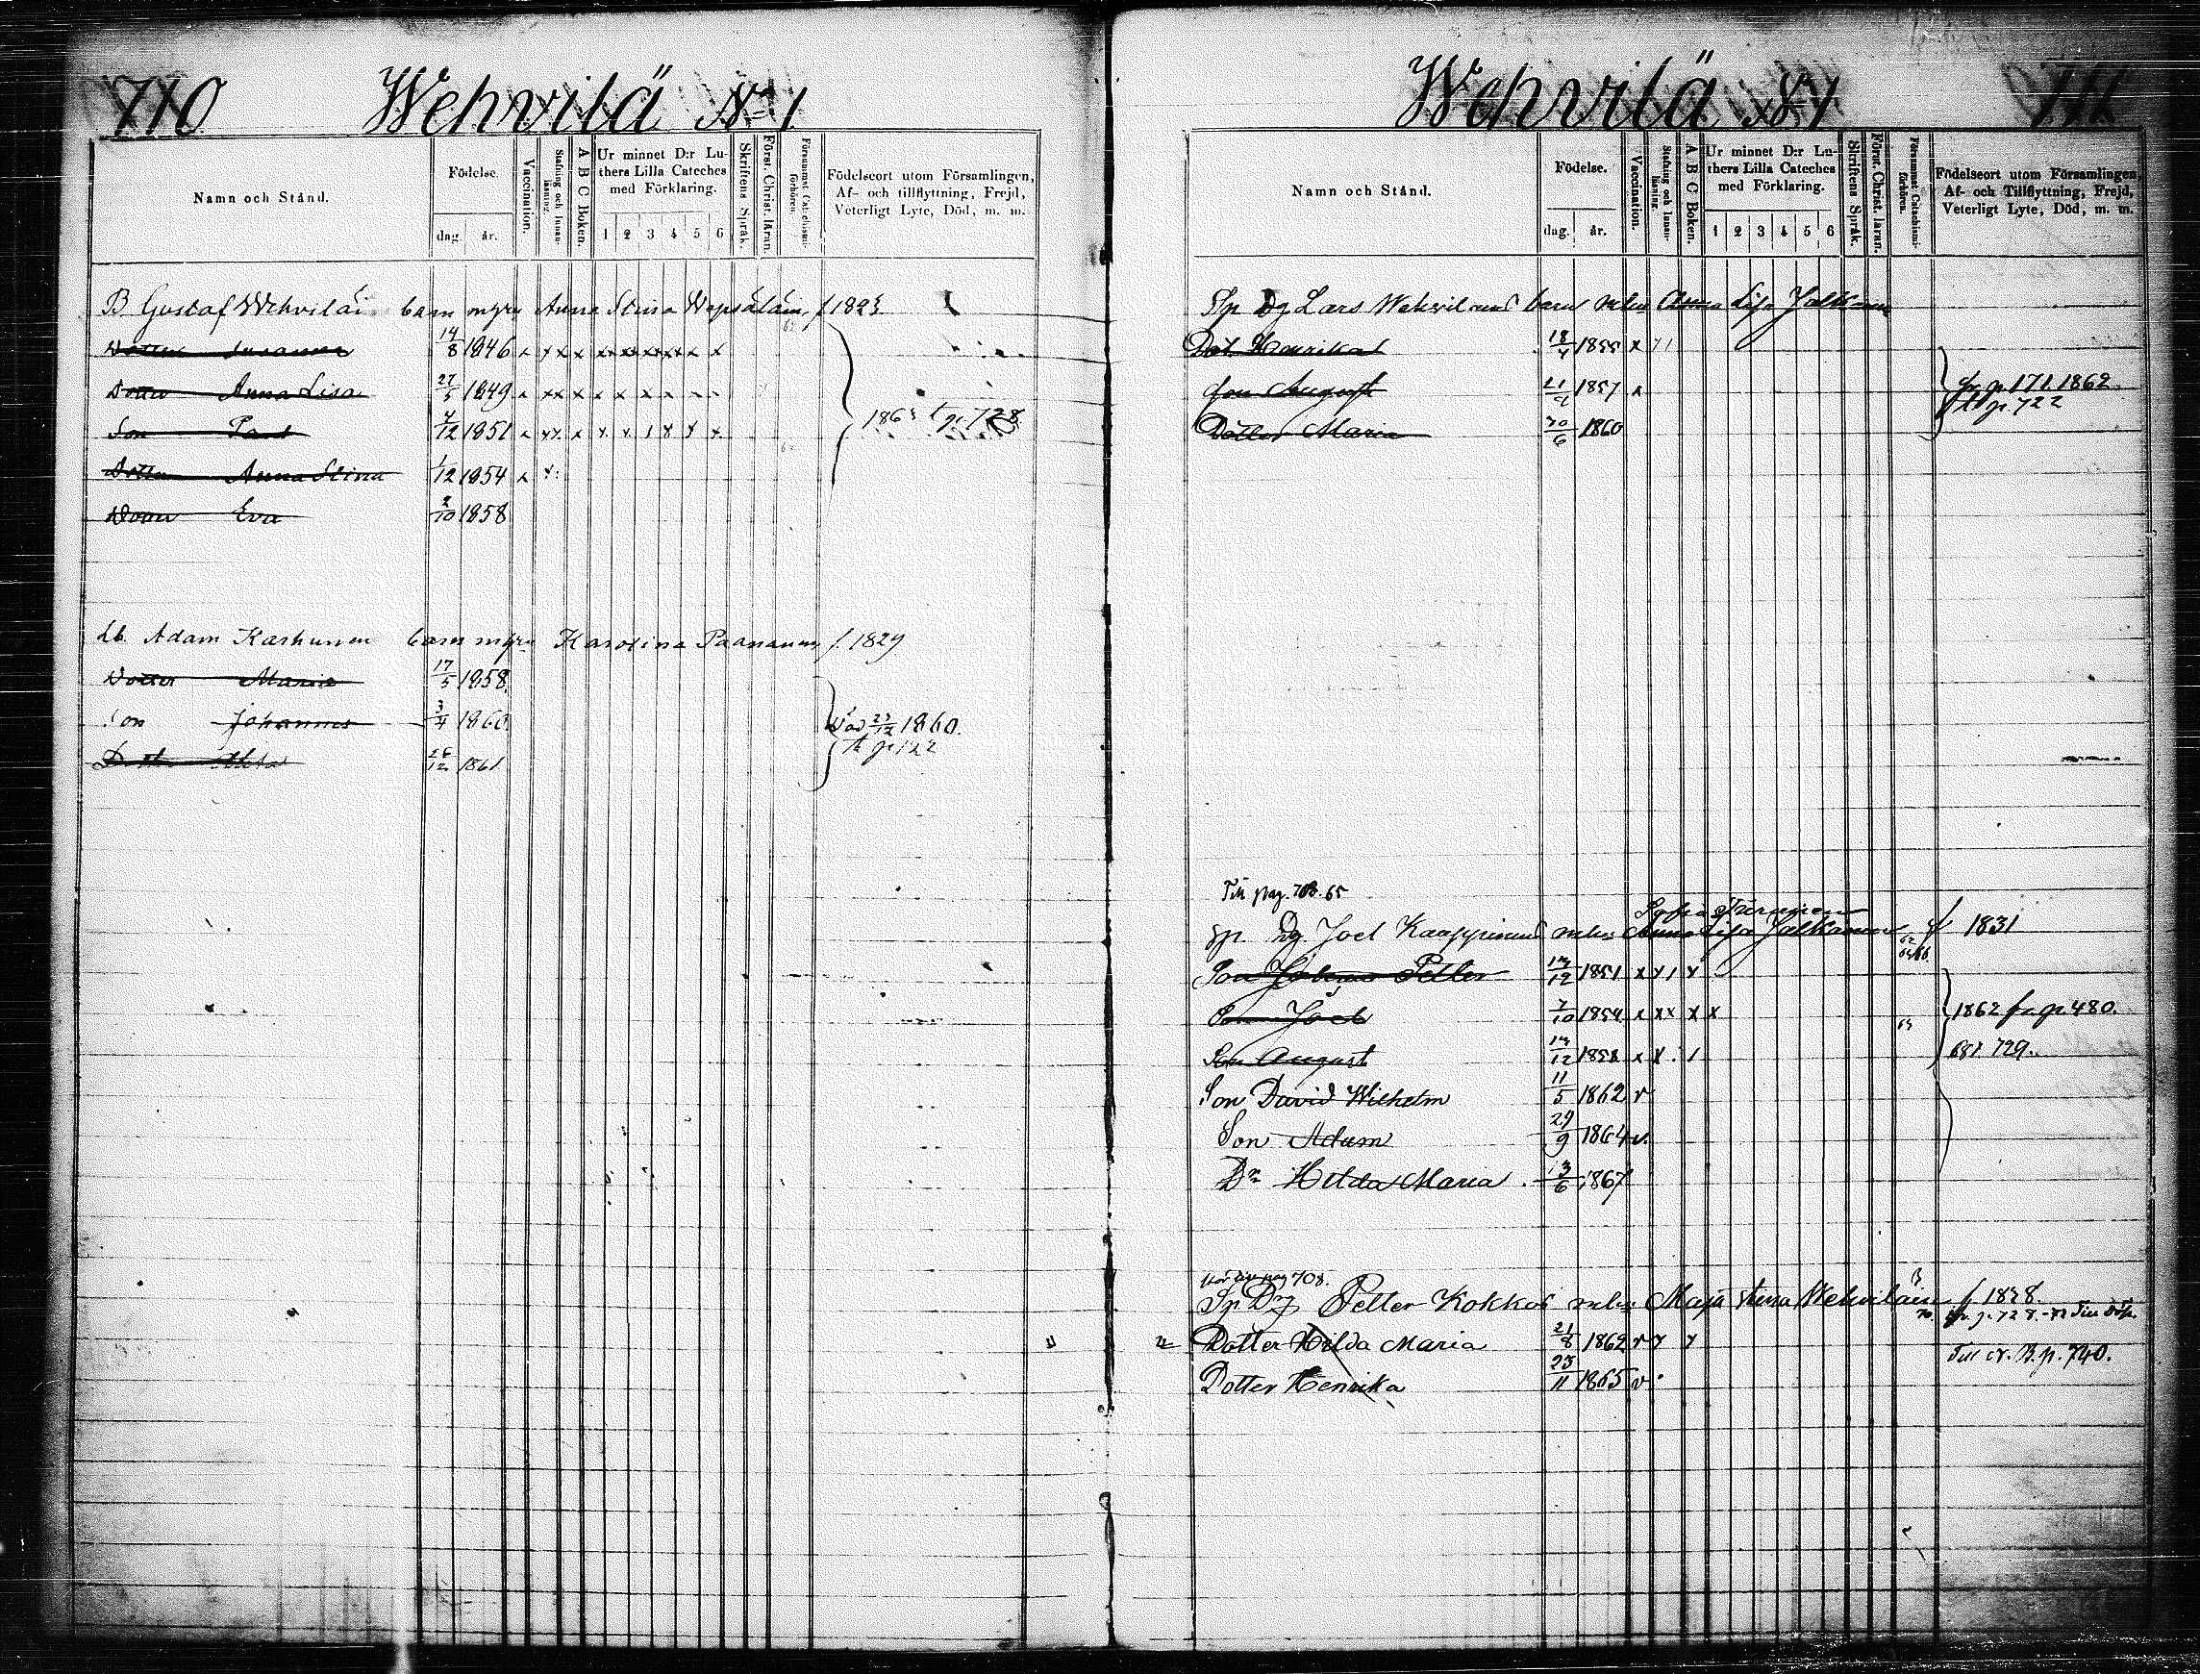 710 Wehvilä No 1
Namn och Stånd.
Födelse.
dag. år.
Vaccination.
Stafning och Innan-läsning.
A B C Boken.
Ur minnet D:r Lu-
thers Lilla Cateches
med Förklaring.
1 2 3 4 5 6
Skriftens Språk.
Först. Christ. läran.
Försummat Catechismi-förhören.
Födelseort utom Församlingen,
Af- och tillflyttning, Frejd,
Veterligt Lyte, Död, m. m.
B Gustaf Wehviläi barn m Anna Stina f 1823.
Dotter Susanna 14/8 1846 x x x x x x x x x x
Dotter Anna Lisa 27/5 1849 x x x x x x x x
Son Paul 4/12 1851 x x x x x x 1 x x x 1863 t. p. 728
Dotter Anna Stina 1/12 1854 x x
Dotter Eva 2/10 1858
Lb. Adam Karhunen barn m Karolina Paananen f. 1829
Dotter Maria 17/5 1858.
Son Johannes 3/4 1860. Död 23/12 1860.
Dotter 26/12 1861
Wehvilä No 1 711
Namn och Stånd.
Födelse.
dag. år.
Vaccination.
Stafning och Innan-läsning.
A B C Boken.
Ur minnet D:r Lu-
thers Lilla Cateches
med Förklaring.
1 2 3 4 5 6
Skriftens Språk.
Först. Christ. läran.
Försummat Catechismi-förhören.
Födelseort utom Församlingen,
Af- och Tillflyttning, Frejd,
Veterligt Lyte, Död, m. m.
Sp Dg Lars barn Anna Lisa
Dot. Henrika 18/4 1855 x
Son August 1857 x fr. p. 171. 1862
Dotter Maria 30/6 1860 t. p. 722
Till pag. 708. 65
Sofia Turunen
Sp. Dg. Joel m Anna Lisa Jalkanen f 1831
Son Petter 13/12 1851 x x 1 x
Son Joel 7/10 1854 x x x x x 1862 fr. p. 480.
Son August 13/12 1858 x x 1 729.
Son David Wilhelm 11/5 1862 v
Son Adam 29/9 1864 v.
Dr Hilda Maria 13/6 1867
pag 708.
Sp Dg Petter Kokkoi Maja Stina Wehviläin f 1838
fr. p. 728.
Dotter Hilda Maria 21/8 1862 v v v
Till p. 740.
Dotter Henrika 23/11 1865 v